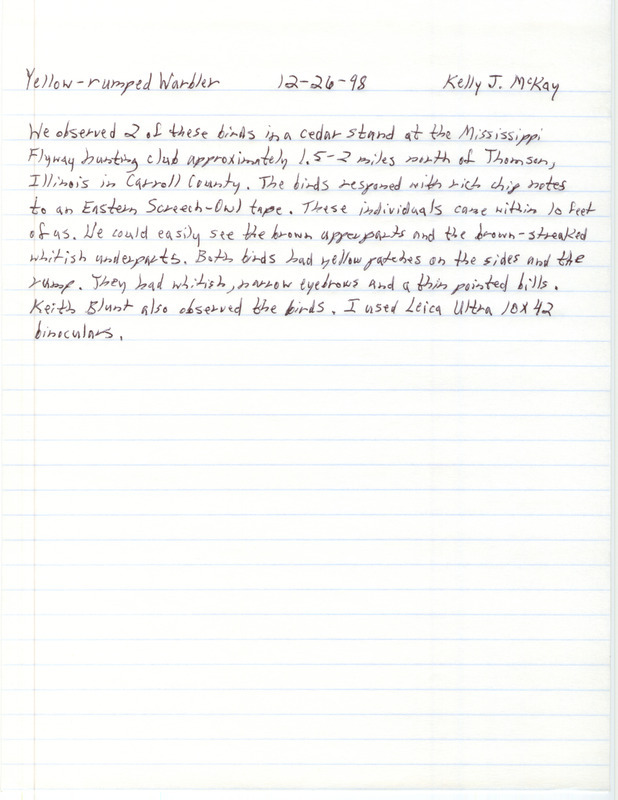 Yellow-rumped Warbler 12-26-98 Kelly J. McKay
We observed 2 of these birds in a cedar stand at the Mississippi
Flyway hunting club approximately 1.5-2 miles north of Thomson,
Illinois in Carroll County. The birds responed with rich chip notes
to an Eastern Screech-Owl tape. These individuals came within 10 feet
of us. We could easily see the brown upperparts and the brown-streaked
whitish underparts. Both birds had yellow patches on the sides and the
rump. They had whitish, narrow eyebrows and a thin pointed bills.
Keith Blunt also observed the birds. I used Leica Ultra 10x42
binoculars.